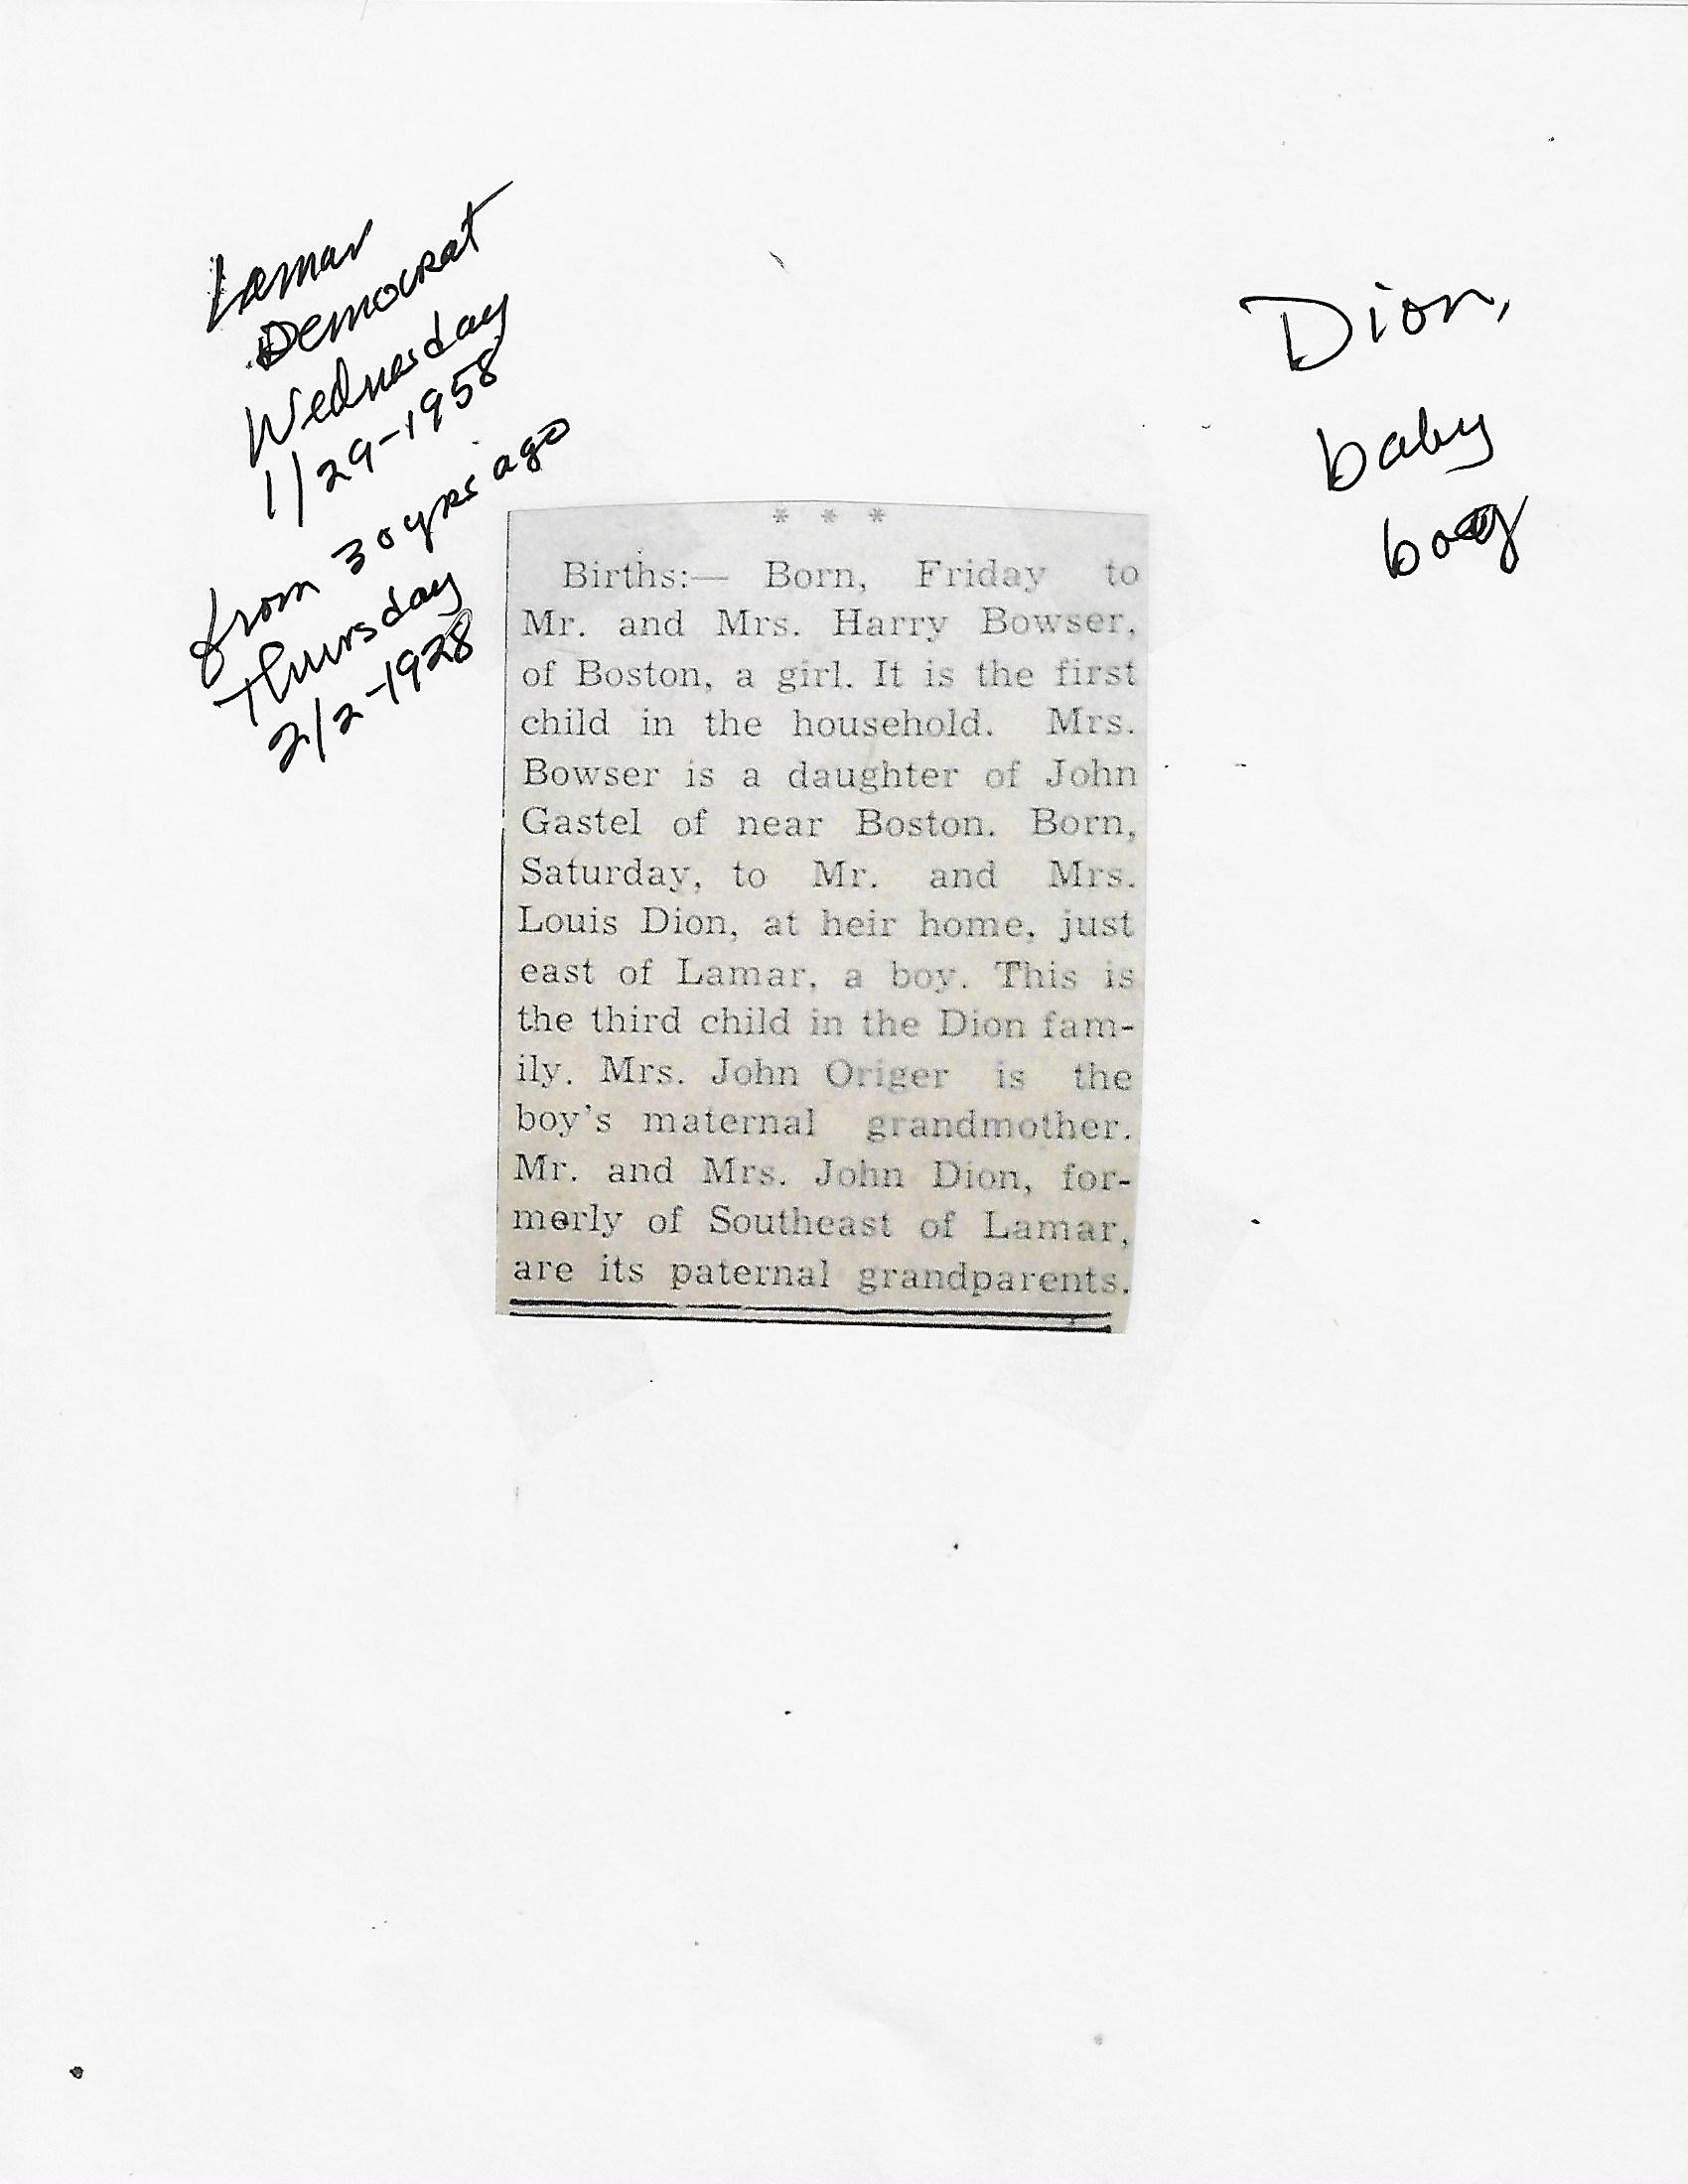 Lamar
Democrat
Wednesday
1/29-1958
from 30 yrs ago
Thursday
2/2-1928
Dion,
baby
boy
* * *
Births:— Born, Friday to
Mr. and Mrs. Harry Bowser,
of Boston, a girl. It is the first
child in the household. Mrs.
Bowser is a daughter of John
Gastel of near Boston. Born,
Saturday, to Mr. and Mrs.
Louis Dion, at heir home, just
east of Lamar, a boy. This is
the third child in the Dion fam-
ily. Mrs. John Origer is the
boy's maternal grandmother.
Mr. and Mrs. John Dion, for-
merly of Southeast of Lamar,
are its paternal grandparents.